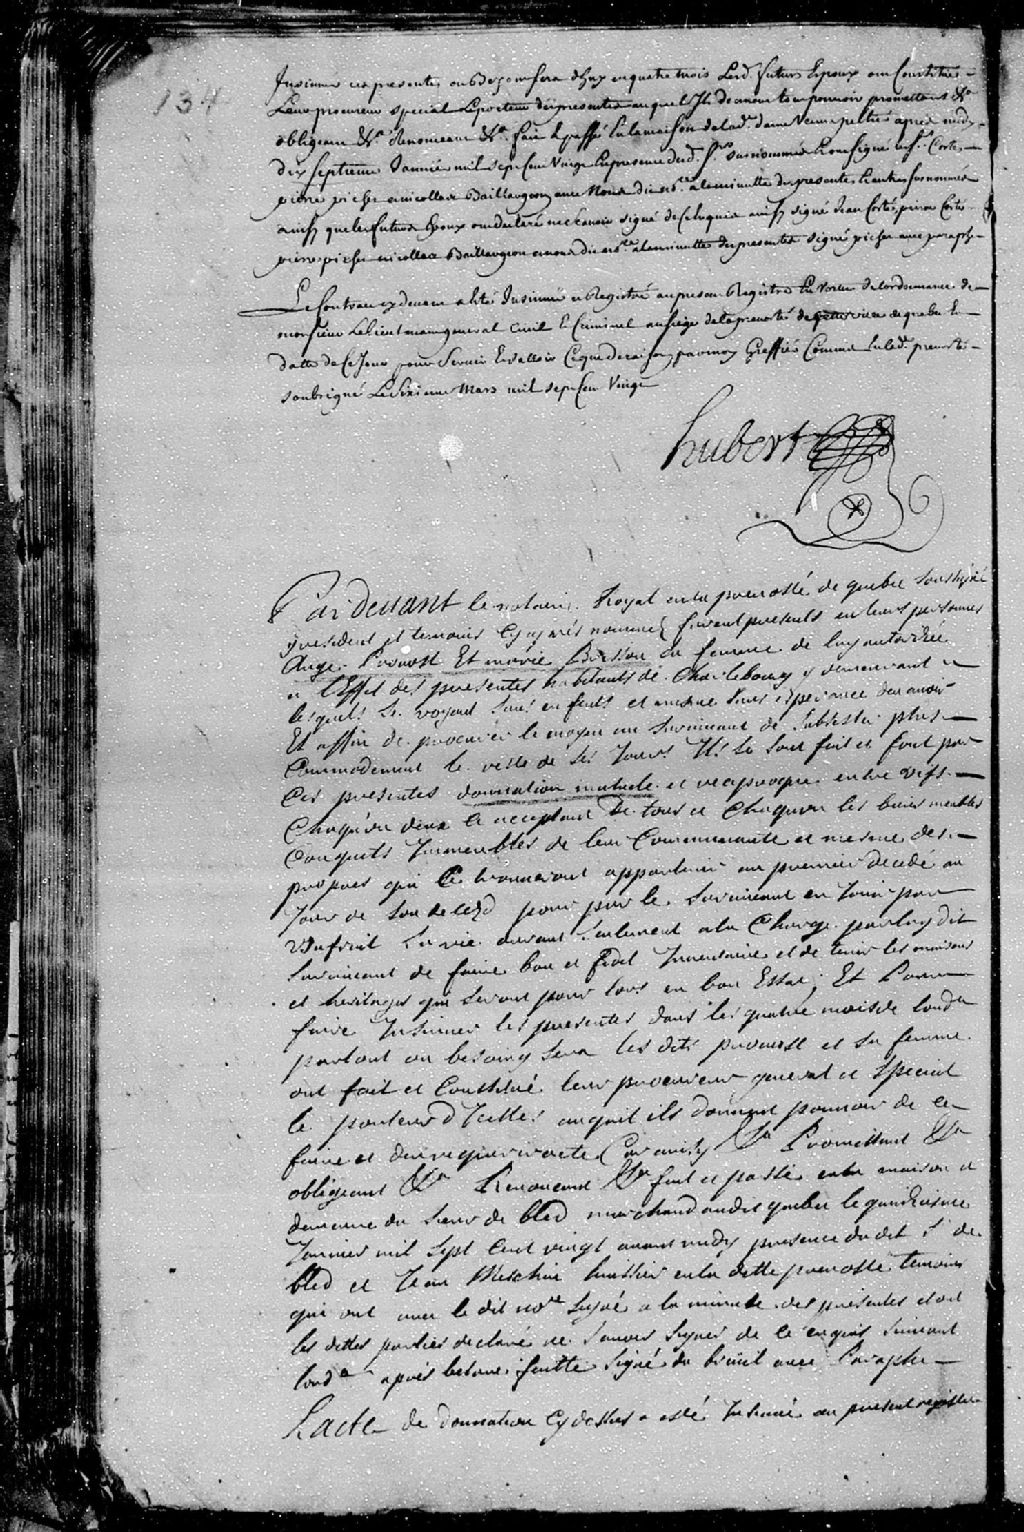 134
Insinuer ces presentes ou Besoin sera dhuy en quatre mois Lesd. futurs Epoux ont Constitué
Leur procureur special Le porteur des presentes auquel Ils donnent pouvoir promettant &a
obligeant &a Renonceant &a fait & passé En la maison de lad. dame Veuve peltié apres midy
dix septieme Janvier mil sept Cent Vingt En presence desd. Srs surnommés Cortes
pierre picher nicollas Baillargeon avec Nous dit nre. a la minutte des presentes Et autres surnommés
aussy que les futurs Epoux ont declaré ne scavoir signé de Ce Enquis ainsy signé Jean Cortes pierre Cortes
pierre picher nicollas Baillargeon et nous dit nre. a la minutte des presentes signé picher avec paraphe
Le Contract cy devant a Eté Insinué et Registré au present Registre En Vertu de lordonnance de
monsieur Le Lieutenant general Civil & Criminel au siege de la prevosté de quebec En
datte de Ce Jour pour servir Et valloir Ce que de raison par moy Greffier Commis En lad. prevosté
soubsigné Le Sixieme Mars mil sept Cent Vingt
hubert
Pardevant le notaire Royal en la prevosté de quebec soussigné
y resident et temoins Cy apres nommez furent presents en leurs personnes
Ange Provost Et marie Brisson sa femme de luy authorisée
a l'Effet des presentes habitants de Charlebourg y demeurant
lesquels se voyant sans enfants et mesme sans Esperance den avoir
Et affin de procurer le moyen au survivant de subsister plus
Commodement le reste de ses Jours Ils se sont fait et font par
Ces presentes donnation mutuele et reciproque entre vifs
Chaqu'un deux Ce acceptant De tous et Chaqu'un les biens meubles
Conquets Immeubles de leur Communauté et mesme des
propres qui Se trouveront appartenir au premier decedé au
Jour de son deced pour par le survivant en Jouir par
Usufruit sa vie durant seulement a la Charge par luy dit
survivant de faire bon et fidel Inventaire et de tenir les maisons
et heritages qui seront pour lors en bon Estat; Et Pour
faire Insinuer les presentes dans les quatre mois de lordce
partout ou besoing sera les dits provost et sa femme
ont fait et Constitué leur procureur general et special
le porteur d'Icelles auquel ils donnent pouvoir de ce
faire et den requerir acte Car ainsy &a Promettant &a
obligeant &a Renonceant &a fait et passé en la maison et
demeure du sieur de bled marchand audit quebec le quinzieme
Janvier mil sept Cent vingt avant midy presence du dit S. de
bled et Jean Meschin huissier en la ditte prevosté temoins
qui ont avec le dit nore signé a la minute des presentes et ont
les dittes parties declaré ne scavoir signer de Ce enquis suivant
lordce apres lecture faitte signé du breuil avec Paraphe
L'acte de donnation Cy dessus a esté Insinué au present registre